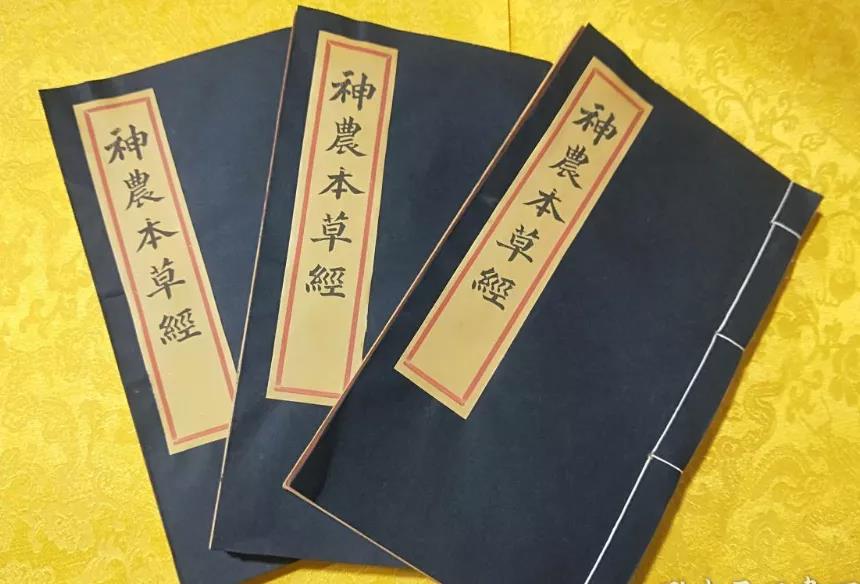 神農本草經
神農本草經
神農本草經